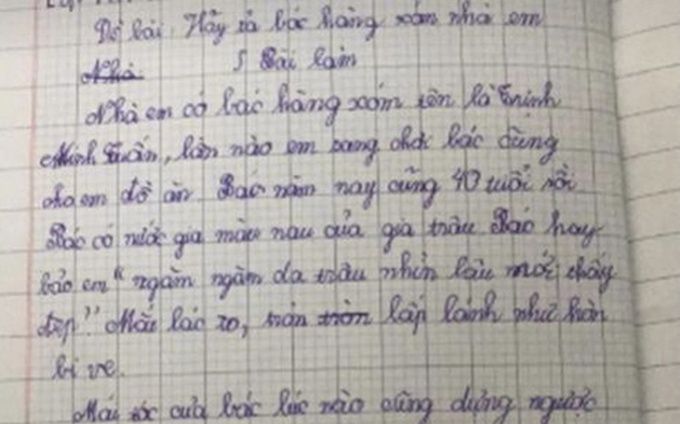 Đề bài: Hãy tả bác hàng xóm nhà em
Nhà
Bài làm
Nhà em có bác hàng xóm tên là Trịnh
Minh Tuấn, lần nào em sang chơi bác cũng
cho em đồ ăn. Bác năm nay cũng 40 tuổi rồi
Bác có nước gia màu nau của gia trâu Bác hay
bảo em "ngăm ngăm da trâu nhìn lâu mới thấy
đẹp" Mắt bác to, tròn tròn lấp lánh như hòn
bi ve.
Mái tóc của bác lúc nào cũng dựng ngược